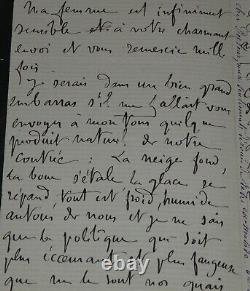 Ma femme est infiniment
sensible à votre charmant
envoi et vous remercie mille
fois.
Je serais dans un bien grand
embarras s'il me fallait vous
envoyer à mon tour quelque
produit naturel de notre
contrée : La neige fond,
la boue s'étale la glace se
répand, tout est froid, humide
autour de nous et je ne sais
que la politique qui soit
plus écoeurante et plus fangeuse
que ne le sont nos quais